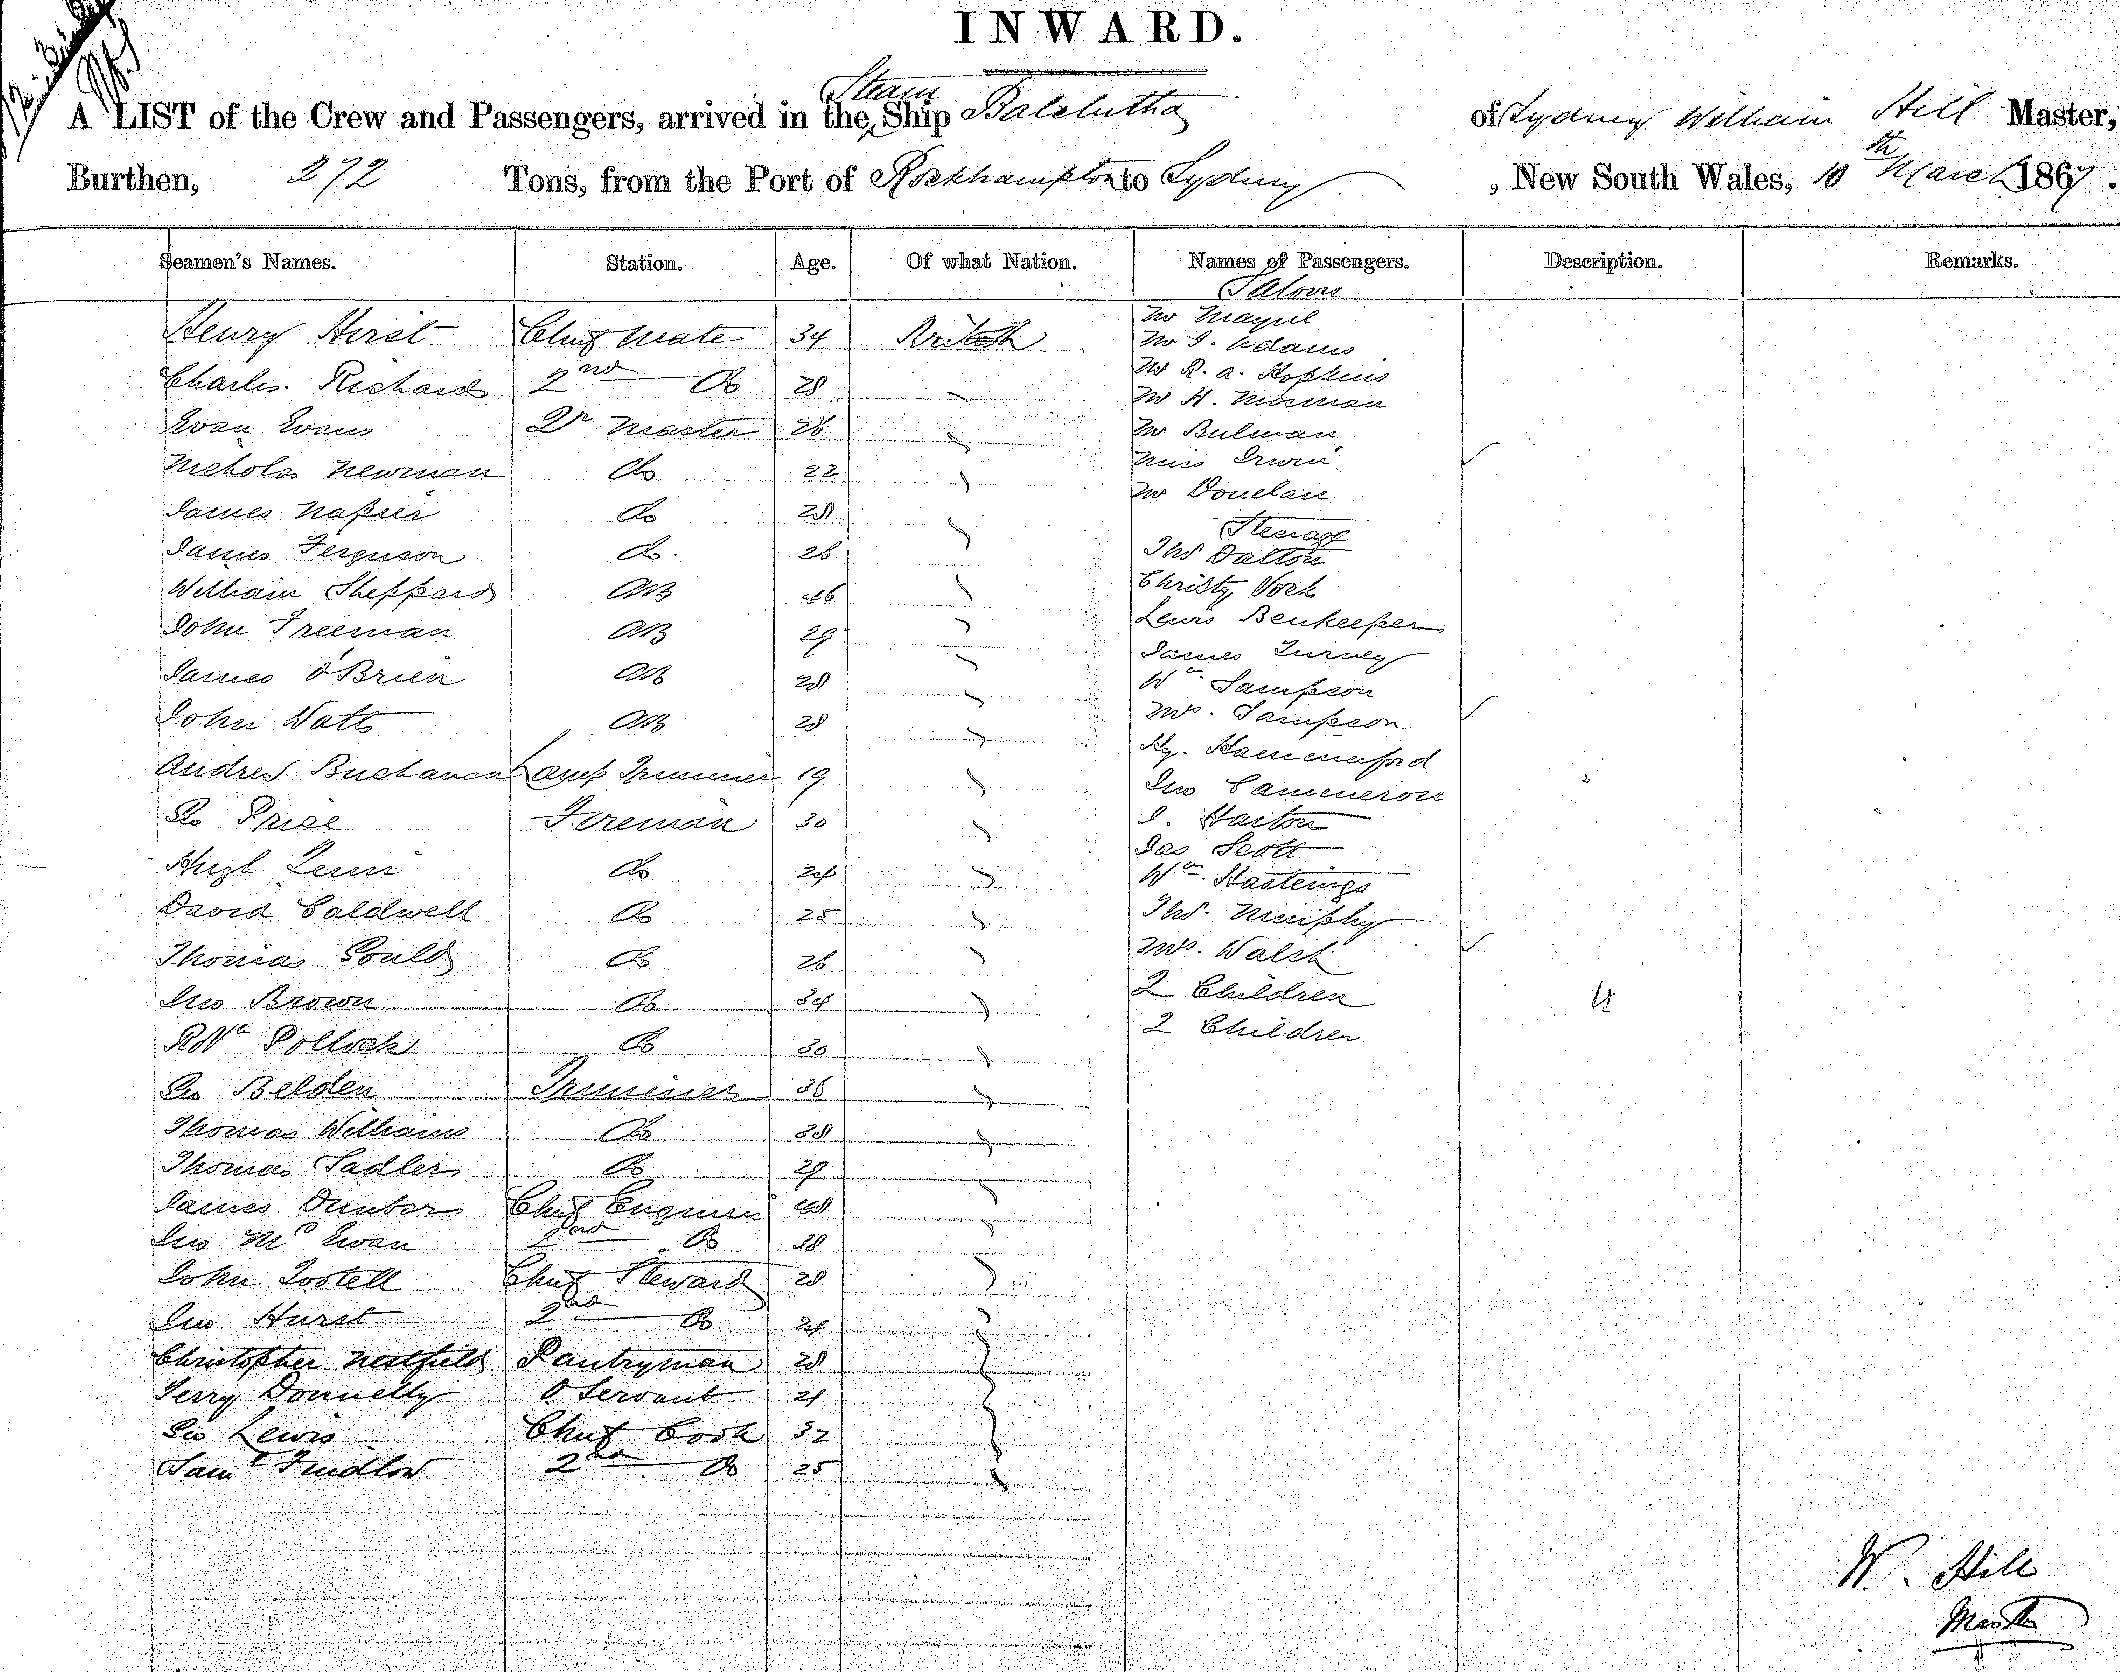 INWARD.
A LIST of the Crew and Passengers, arrived in the Steam Ship Balclutha of Sydney William Hill Master,
Burthen, 272 Tons, from the Port of Rockhampton to Sydney, New South Wales, 10th March 1867.
Seamen's Names. Station. Age. Of what Nation. Names of Passengers. Description. Remarks.
Saloon
Henry Hirst Chief Mate 34 British
Charles Richards 2nd Do 28
Evan Evans Qr Master 26
Nicholas Newman Do 22
James Napier Do 28
James Ferguson Do 26
William Sheppard AB 46
John Freeman AB 29
James O'Brien AB 28
John Watts AB 28
Andrew Buchanan Lamp Trimmer 19
Geo Price Fireman 30
Hugh Do 24
David Caldwell Do 25
Thomas Gould Do 26
Jno Brown Do 34
Pollock Do 30
Geo Belden Trimmer 36
Thomas Williams Do 38
Thomas Sadler Do 29
James Dunbar Chief Engineer 48
Jno McEwan 2nd Do 38
John Tostell Chief Steward 28
Jno Hurst 2nd Do 24
Christopher Nestfield Pantryman 28
Jerry Donnelly Servant 21
Geo Lewis Chief Cook 32
Saml Findlow 2nd Do 25
Mr
Mr J. Adams
Mr R. A. Hopkins
Mr H. Norman
Mr Bulman
Miss Irwin
Mr Donelan
Steerage
Thos Dalton
Christy Vock
Lewis Benkeeper
James Turvey
Wm Sampson
Mrs. Sampson
Hy. Hammerford
Jno Cammeron
J. Harton
Jas Scott
Wm Hasteings
Thos. Murphy
Mrs. Walsh
2 Children 4
2 Children
W. Hill
Master